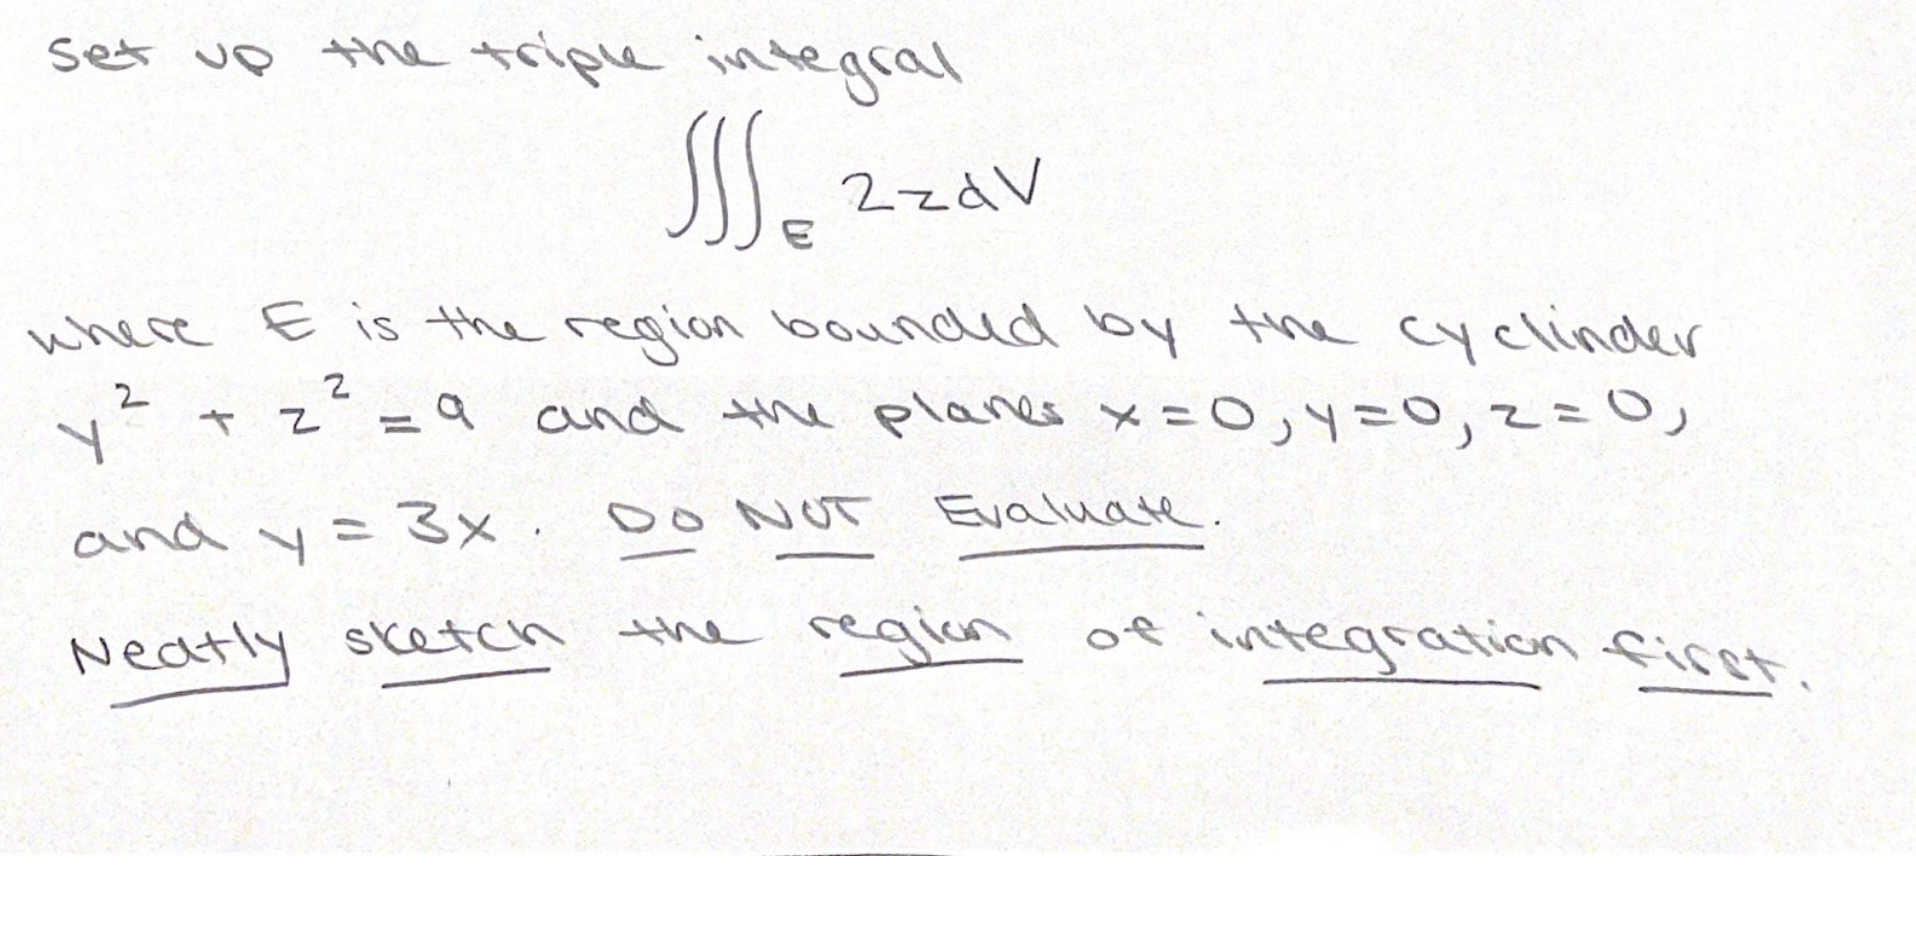 Set up the triple integral
∭_E 2zdV
where E is the region bounded by the cyclinder
y² + z² = 9 and the planes x=0, y=0, z=0,
and y = 3x. DO NOT Evaluate.
Neatly sketch the region of integration first.